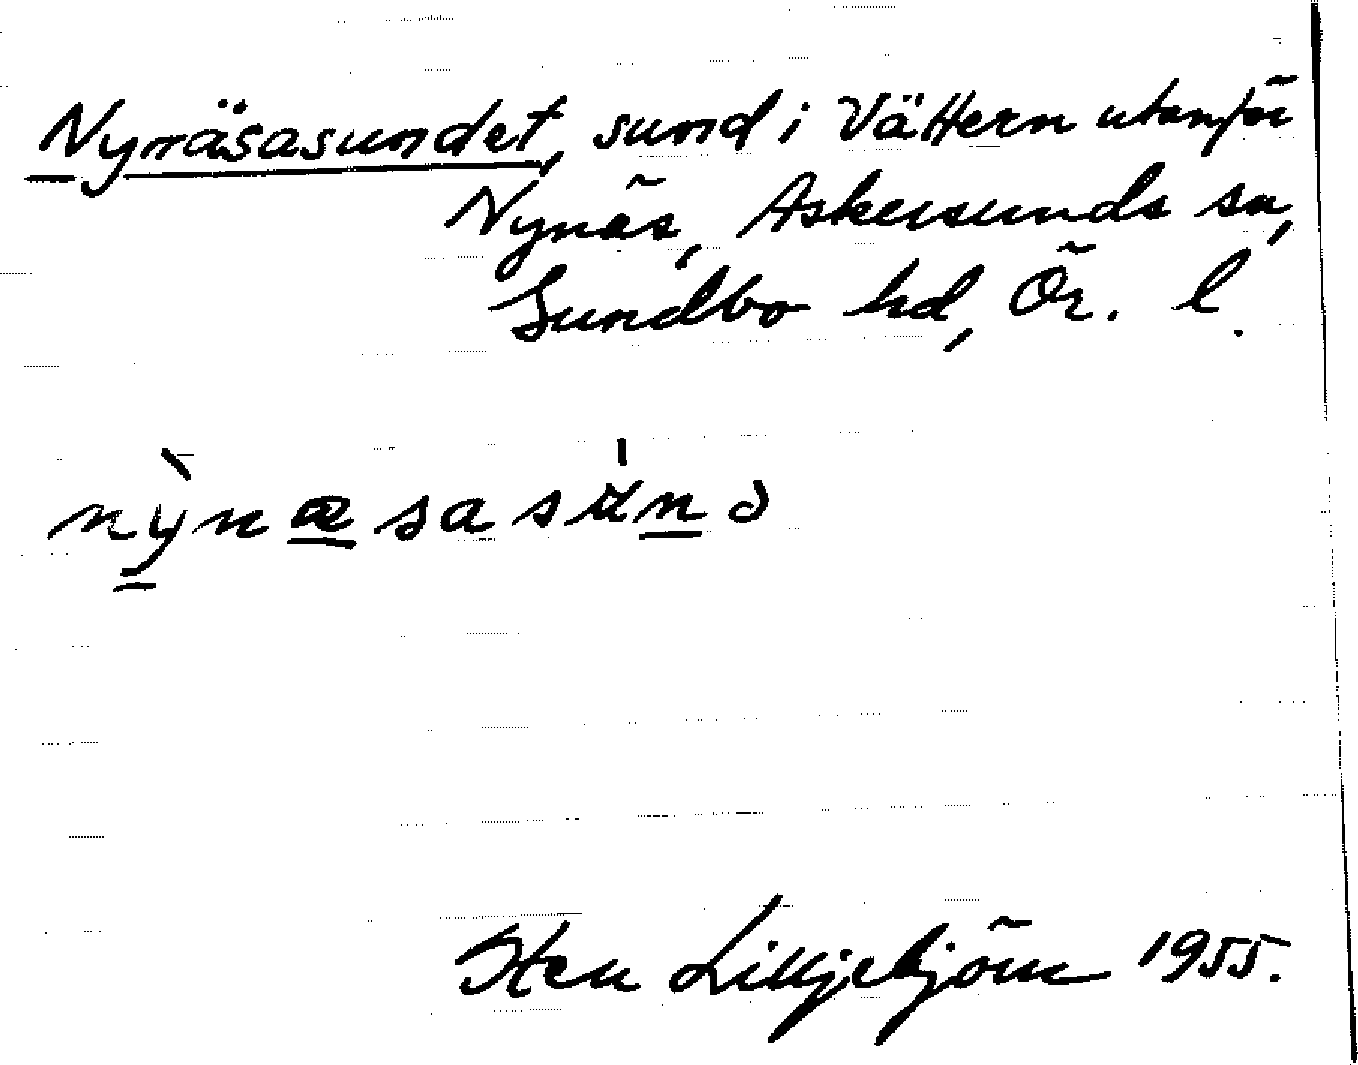 Nynäsasundet, sund i Vättern utanför
Nynäs, Askersunds sn,
Sundbo hd, Ör. l.
nỳnæsasúnə
Sten Lilljebjörn 1955.